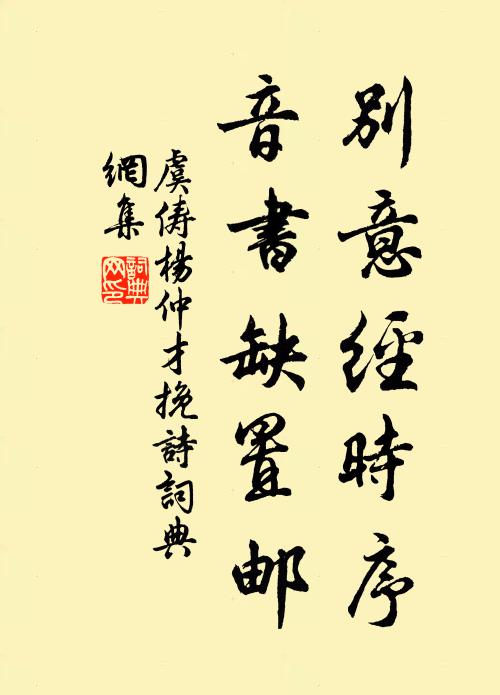 別意經時序
音書缺置邮
虞俦楊仲才挽詩詞典
網集
詞典
网印